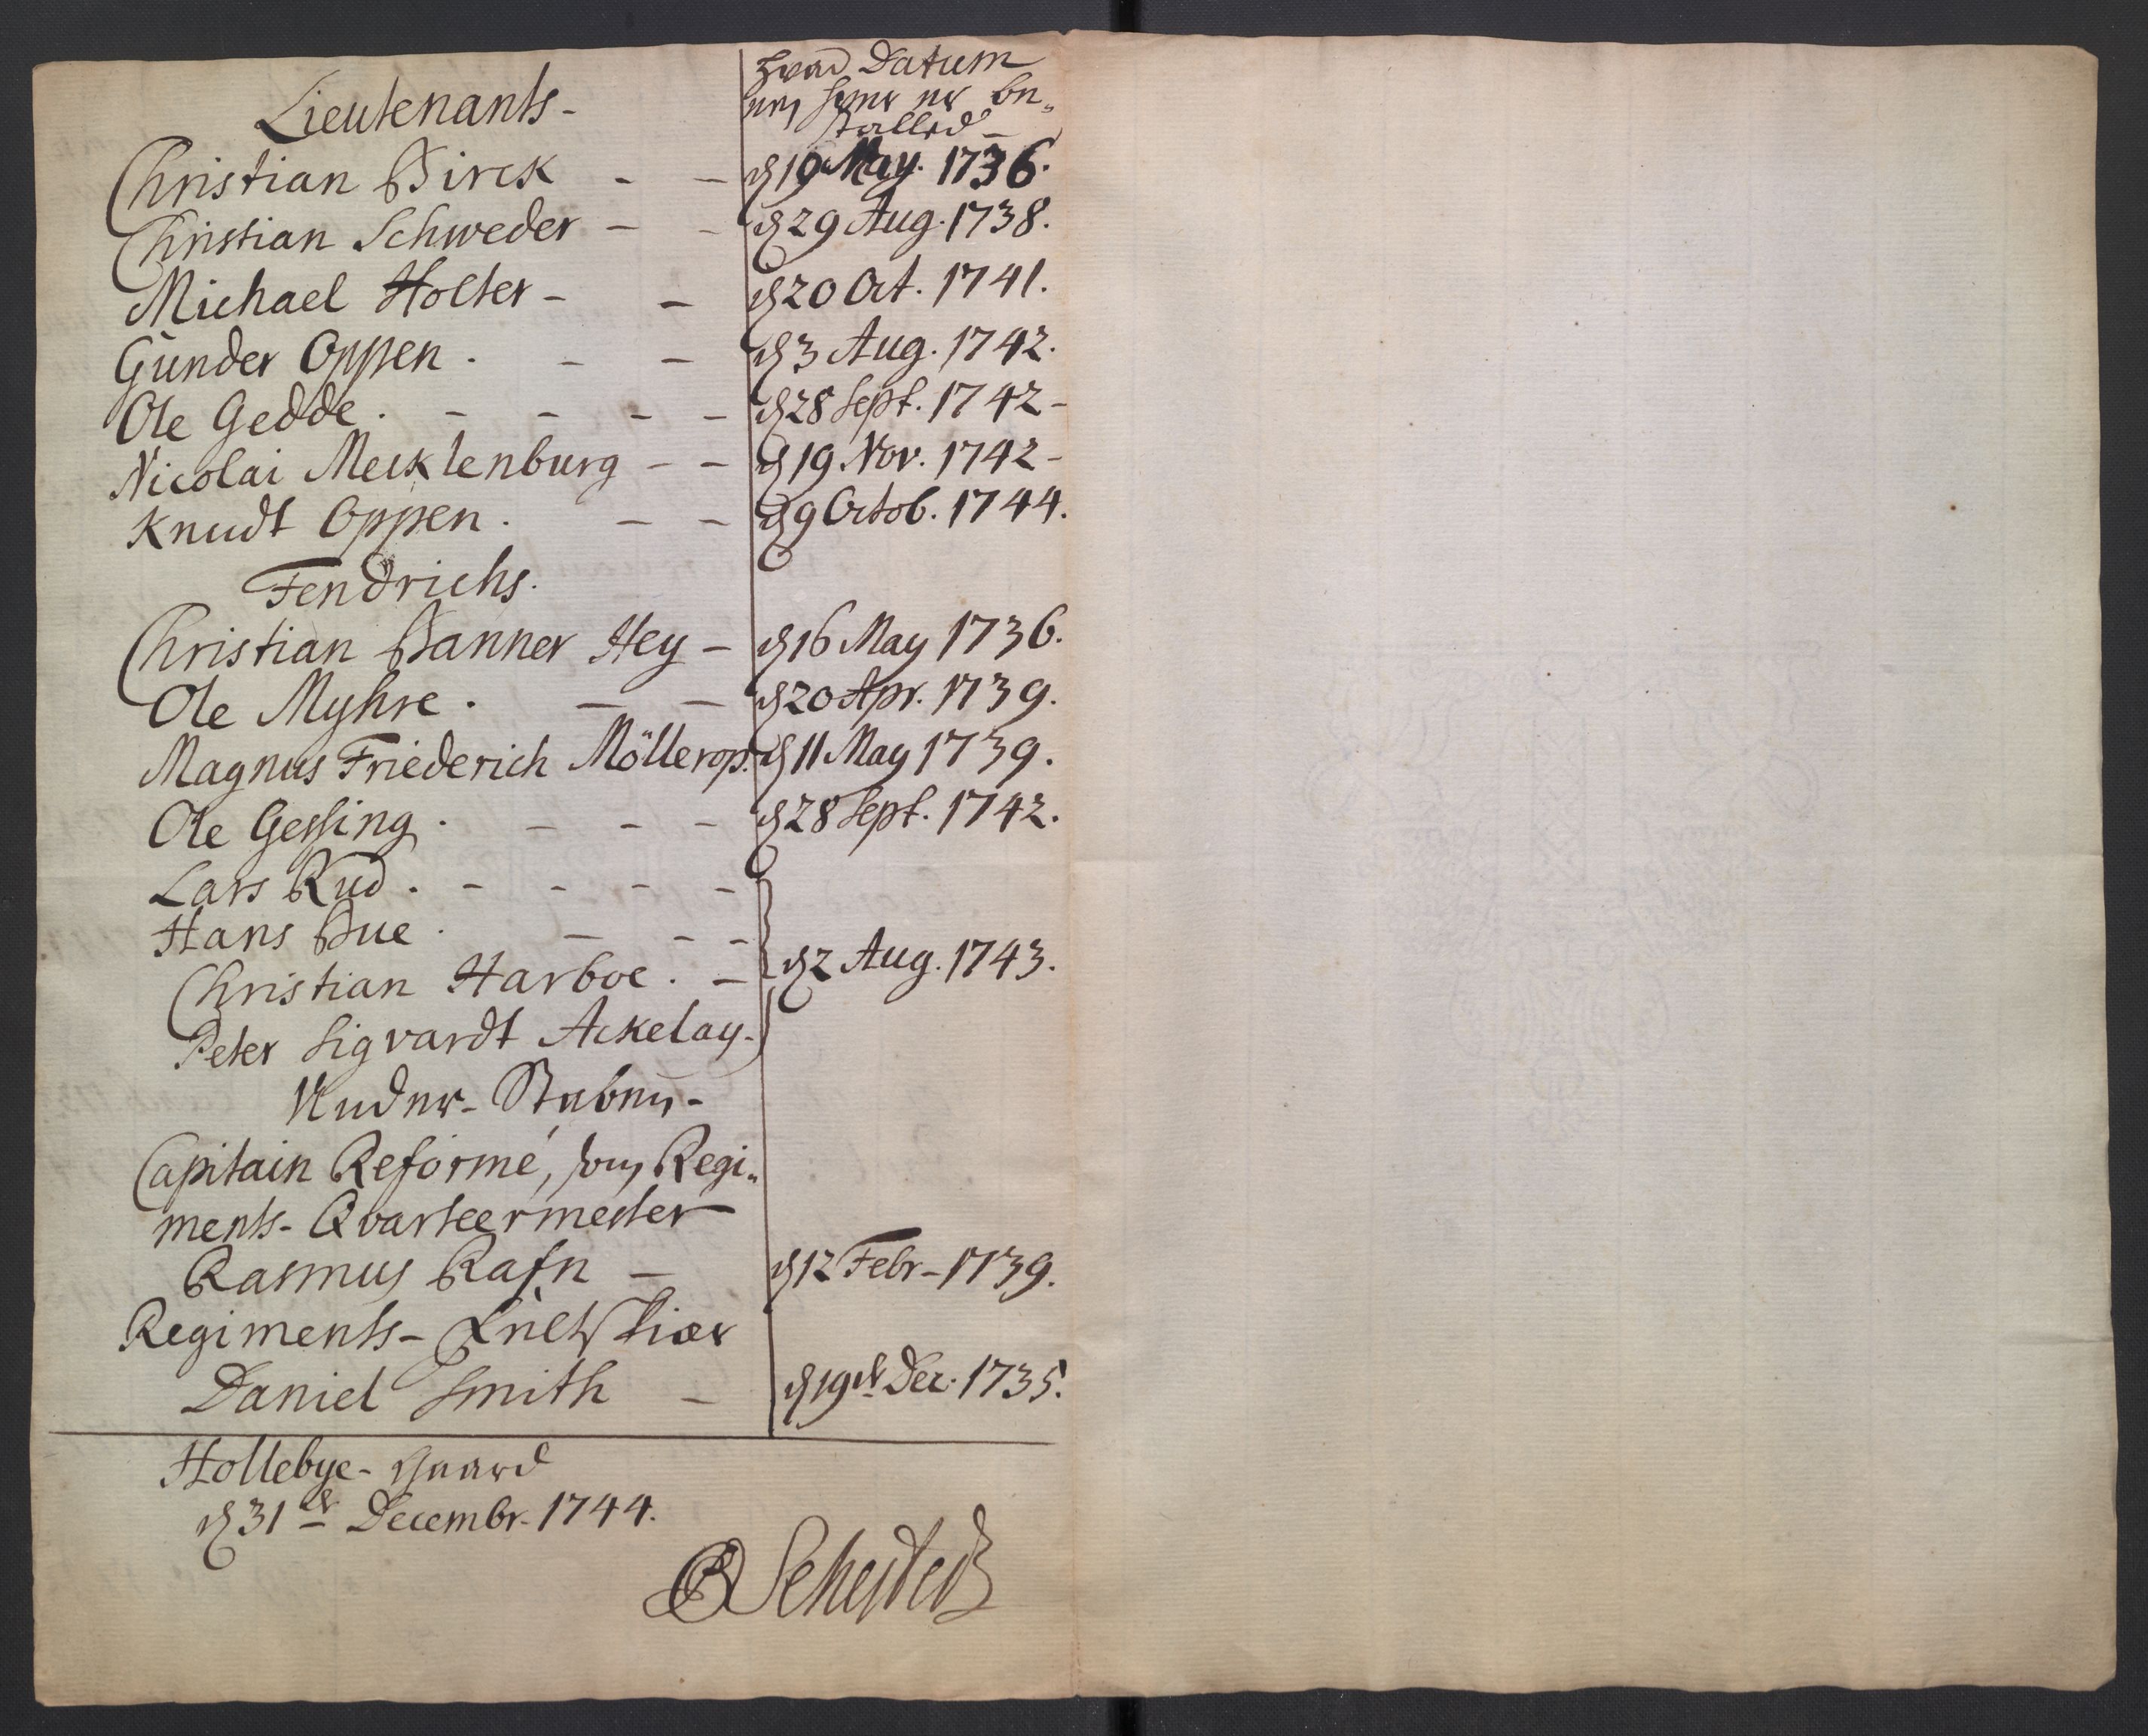 Lieutenants-
hvad Datum
enhver er be„
stalled
Christian Birck - - d 19 May. 1736.
Christian Schweder - - d 29 Aug. 1738.
Michael Holter - - d 20 Oct. 1741.
Gunder Oppen. - - d 3 Aug. 1742.
Ole Gedde. - - - - d 28 Sept. 1742-
Nicolai Mecklenburg - - d 19. Nov. 1742-
Knudt Oppen. - - d 9 Octob. 1744.
Fendrichs.
Christian Banner Hey - d 16 May 1736.
Ole Myhre. - - d 20 Apr. 1739.
Magnus Friederich Möllerop. d 11 May 1739.
Ole Gessing. - - - d 28 Sept. 1742.
Lars Rud. - - - -
Hans Bue. - - -
Christian Harboe. - d 2 Aug. 1743.
Peter Sigvardt Ackelay-
Under-Staben-
Capitain Reformé, som Regi„
ments-Qvarteermester
Rasmus Rafn - d 12 Febr- 1739.
Regiments-Feltskiær
Daniel Smith - d 19de Dec. 1735.
Hollebye-Gaard
d 31de Decembr. 1744.
Sehested